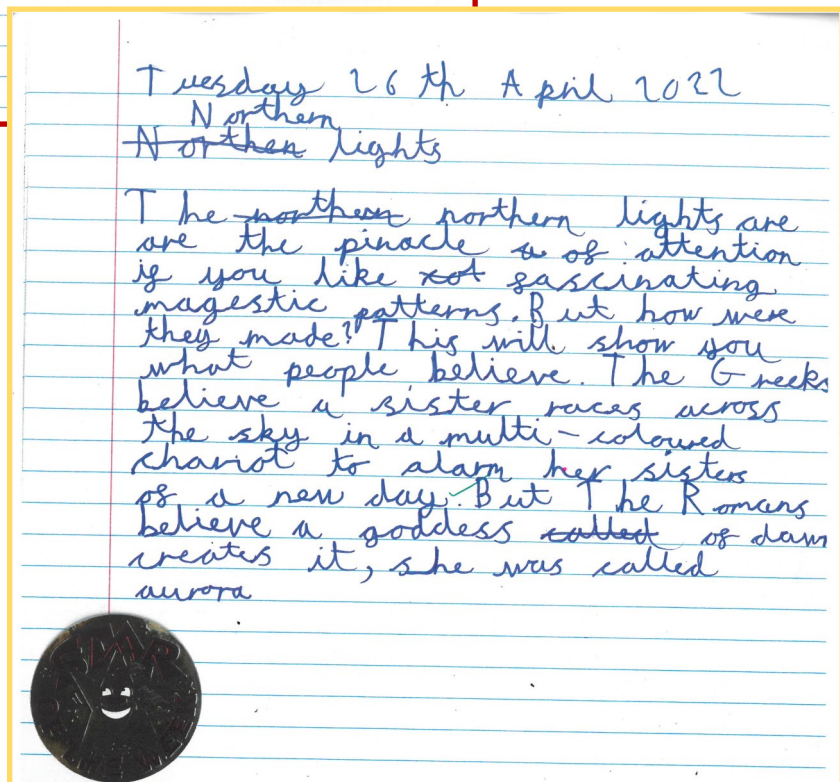 Tuesday 26th April 2022
Northern
Northen lights
The northern northern lights are
are the pinacle a of attention
if you like fascinating
magestic patterns. But how were
they made? This will show you
what people believe. The Greeks
believe a sister races across
the sky in a multi-coloured
chariot to alarm her sisters
of a new day. But The Romans
believe a goddess called of dawn
creates it, she was called
aurora